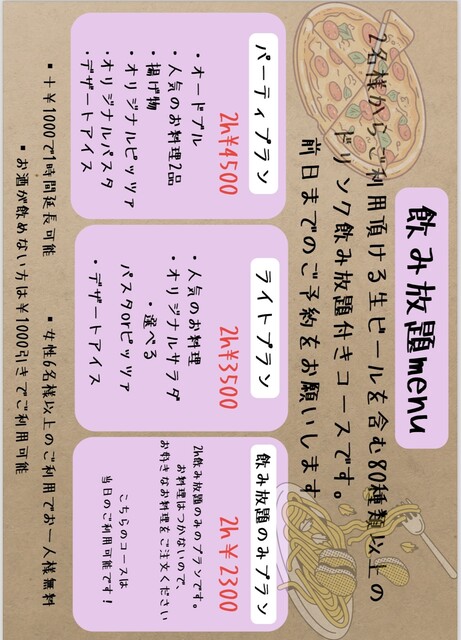 飲み放題menu
2名様からご利用頂ける生ビールを含む80種類以上の
ドリンク飲み放題付きコースです。
前日までのご予約をお願いします
パーティプラン
2h¥4500
・オードブル
・人気のお料理2品
・揚げ物
・オリジナルピッツァ
・オリジナルパスタ
・デザートアイス
ライトプラン
2h¥3500
・人気のお料理
・オリジナルサラダ
・選べる
パスタorピッツァ
・デザートアイス
飲み放題のみプラン
2h¥2300
2h飲み放題のみのプランです。
お料理はつかないので、
お好きなお料理をご注文ください
こちらのコースは
当日のご利用可能です！
▪+¥1000で1時間延長可能
▪女性6名様以上のご利用でお一人様無料
▪お酒が飲めない方は¥1000引きでご利用可能